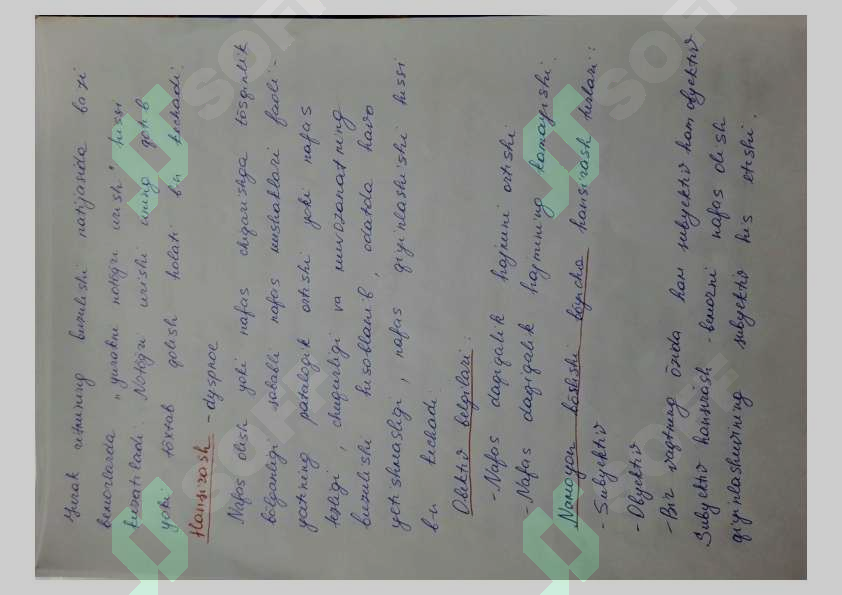 Yurak ritmining buzulishi natijasida ba'zi
bemorlarda „yurakni notŏg̀ri urish" hissi
kuzatiladi. Notŏg̀ri urishi uning qotib
yoki tŏxtab qolish holati b-n kechadi.
Hansirash - dyspnoe
Nafas olish yoki nafas chiqarishga tŏsqinlik
bŏlganligi sababli nafas mushaklari faoli-
yatining patalogik ortishi yoki nafas
tezligi, chuqurligi va muvozanatning
buzulishi hisoblanib, odatda havo
yetishmasligi, nafas qiyinlashishi hissi
b-n kechadi
Obektiv belgilari:
- Nafas daqiqalik hajmini ortishi
- Nafas daqiqalik hajmining kamayishi.
Namoyon bŏlishi bŏyicha hansirash turlari:
- Subyektiv
- Obyektiv
- Bir vaqtning ŏzida ham subyektiv ham obyektiv
Subyektiv hansirash - bemorni nafas olish
qiyinlashuvining subyektiv his etishi.
SOFF
SOFF
SOFF
SOFF